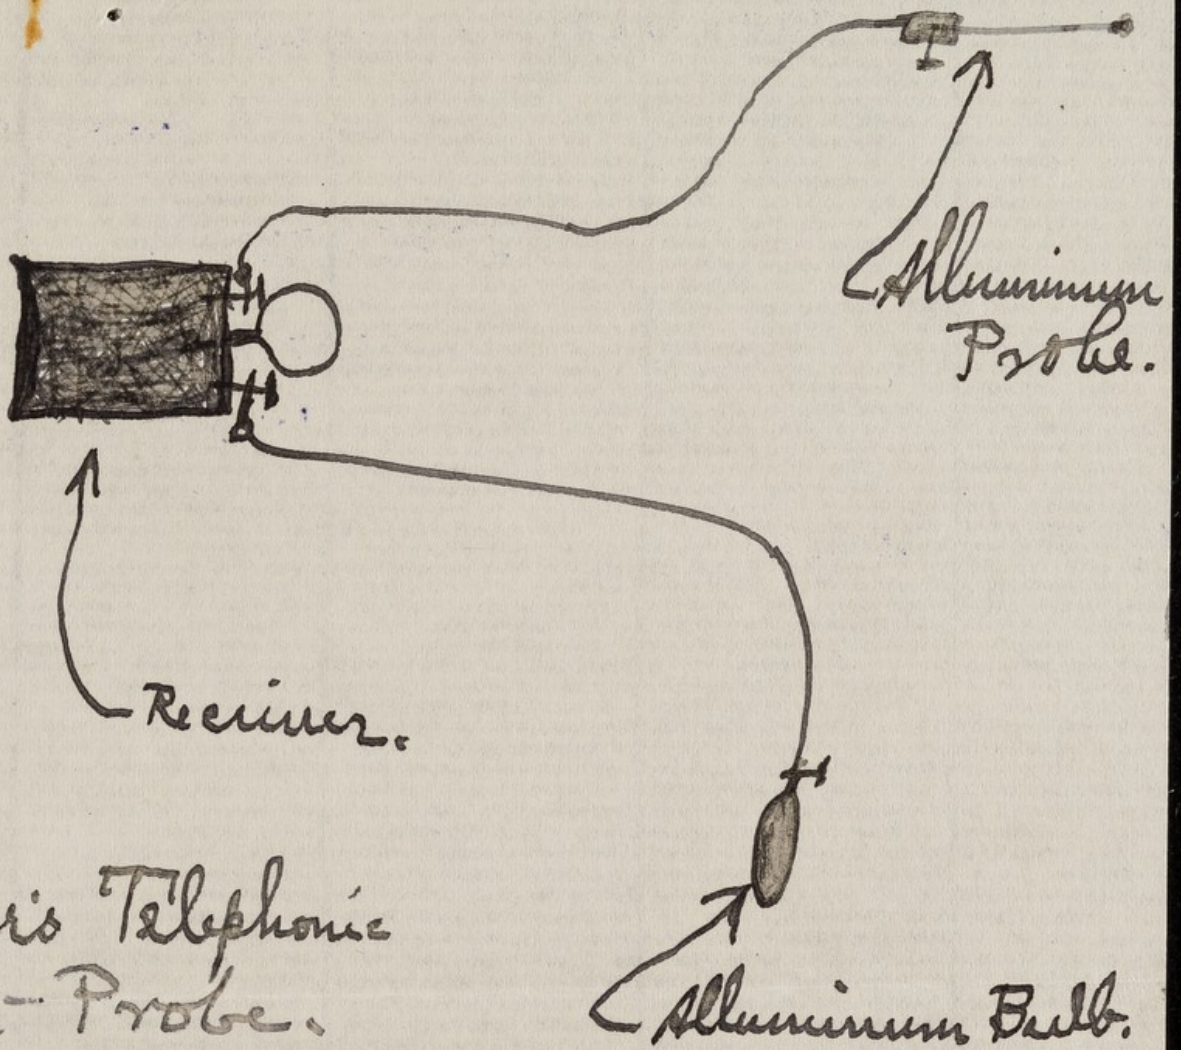 Alluminum
Probe.
Reciever.
r's Telephonic
- Probe.
Alluminum Bulb.